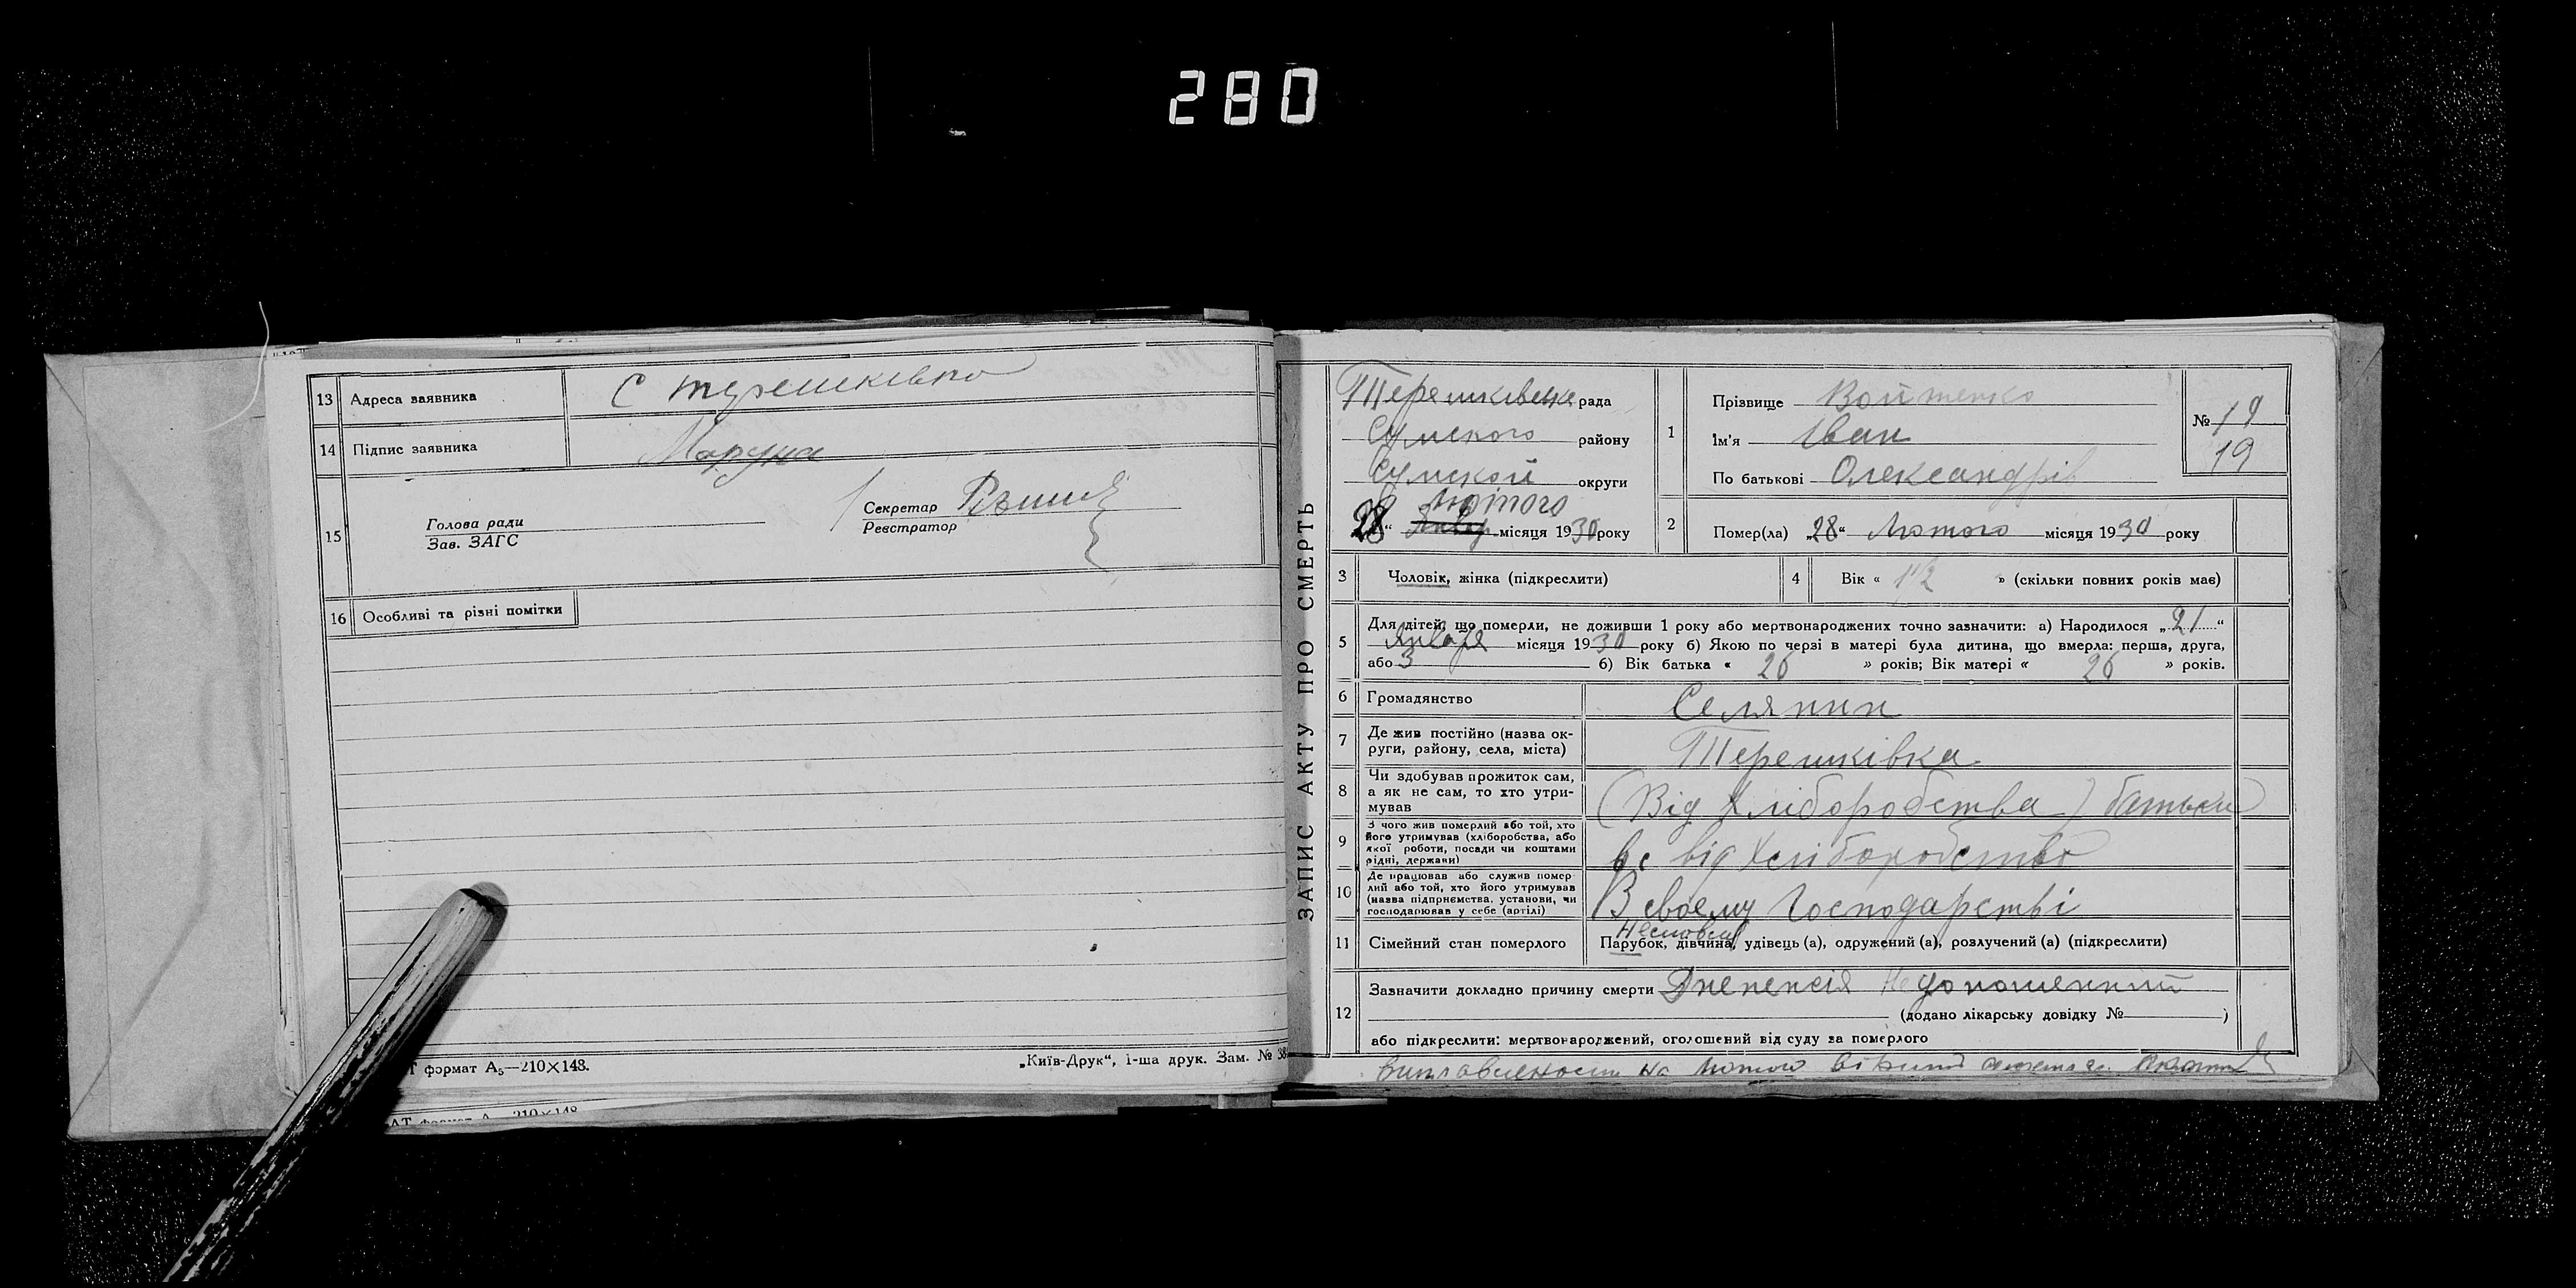 280
13 Адреса заявника С терешківка
14 Підпис заявника Маруна
15 Голова ради
Зав. ЗАГС
Секретар
Реєстратор
16 Особливі та різні помітки
формат А5—210×148.
„Київ-Друк“, 1-ша друк. Зам. № 38
ЗАПИС АКТУ ПРО СМЕРТЬ
Терешківська рада
Сумского району
Сумской округи
Лютого
28 “ Январ місяця 1930 року
1 Прізвище Войтенко
Ім'я Іван
По батькові Олександрів
№ 19
19
2 Помер(ла) „28“ Лютого місяця 1930 року
3 Чоловік, жінка (підкреслити)
4 Вік « 1½ » (скільки повних років має)
5 Для дітей, що померли, не доживши 1 року або мертвонароджених точно зазначити: а) Народилося „21“
Января місяця 1930 року б) Якою по черзі в матері була дитина, що вмерла: перша, друга,
або 3 б) Вік батька « 26 » років; Вік матері « 26 » років.
6 Громадянство Селянин
7 Де жив постійно (назва ок-
руги, району, села, міста) Терешківка
8 Чи здобував прожиток сам,
а як не сам, то хто утри-
мував (Від Хліборобства) батьки
9 З чого жив померлий або той, хто
його утримував (хліборобства, або
якої роботи, посади чи коштами
рідні, держави) від Хліборобство
10 Де працював або служив помер
лий або той, хто його утримував
(назва підприємства, установи, чи
господарював у себе (артілі) В своему Господарстві
11 Сімейний стан померлого Парубок, дівчина, удівець (а), одружений (а), розлучений (а) (підкреслити)
12 Зазначити докладно причину смерти Диспепсія Недоношенний
(додано лікарську довідку № )
або підкреслити: мертвонароджений, оголошений від суду за померлого
на Лютого